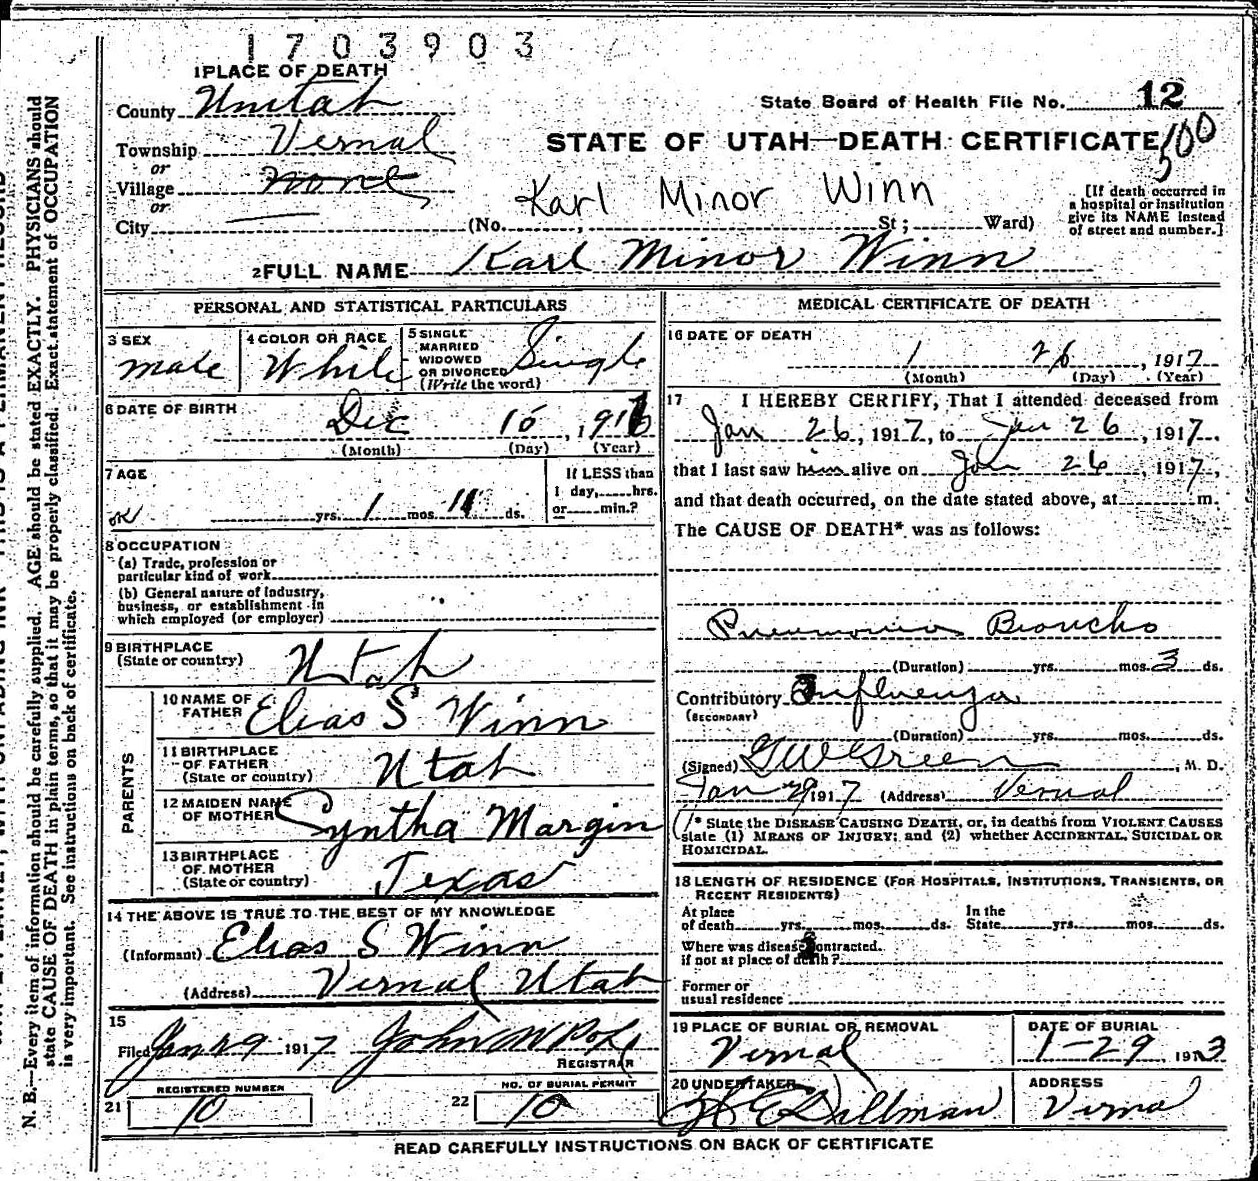 1703903
1 PLACE OF DEATH
County Unitah
State Board of Health File No. 12
STATE OF UTAH—DEATH CERTIFICATE
500
Township Vernal
or
Village none
or
City
Karl Minor Winn
(No. , St; Ward)
[If death occurred in
a hospital or institution
give its NAME instead
of street and number.]
2 FULL NAME Karl Minor Winn
PERSONAL AND STATISTICAL PARTICULARS
3 SEX
male
4 COLOR OR RACE
White
5 SINGLE
MARRIED
WIDOWED
OR DIVORCED
(Write the word)
Single
6 DATE OF BIRTH
Dec 15, 1916
(Month) (Day) (Year)
7 AGE
yrs. 1 mos. 11 ds.
If LESS than
1 day, hrs.
or min.?
8 OCCUPATION
(a) Trade, profession or
particular kind of work
(b) General nature of industry,
business, or establishment in
which employed (or employer)
9 BIRTHPLACE
(State or country)
Utah
PARENTS
10 NAME OF
FATHER
Elias S Winn
11 BIRTHPLACE
OF FATHER
(State or country)
Utah
12 MAIDEN NAME
OF MOTHER
Syntha Margin
13 BIRTHPLACE
OF MOTHER
(State or country)
Texas
14 THE ABOVE IS TRUE TO THE BEST OF MY KNOWLEDGE
(Informant) Elias S Winn
(Address) Vernal Utah
15
Filed Jan 29 1917 John W
REGISTRAR
REGISTERED NUMBER
21 10
NO. OF BURIAL PERMIT
22 10
MEDICAL CERTIFICATE OF DEATH
16 DATE OF DEATH
1 26, 1917
(Month) (Day) (Year)
17 I HEREBY CERTIFY, That I attended deceased from
Jan 26, 1917, to Jan 26, 1917,
that I last saw him alive on Jan 26, 1917,
and that death occurred, on the date stated above, at m.
The CAUSE OF DEATH* was as follows:
Pneumonia Broncho
(Duration) yrs. mos. 3 ds.
Contributory Influenza
(SECONDARY)
(Duration) yrs. mos. ds.
(Signed) G W Green, M. D.
Jan 29 1917 (Address) Vernal
* State the DISEASE CAUSING DEATH, or, in deaths from VIOLENT CAUSES
state (1) MEANS OF INJURY; and (2) whether ACCIDENTAL, SUICIDAL OR
HOMICIDAL.
18 LENGTH OF RESIDENCE (FOR HOSPITALS, INSTITUTIONS, TRANSIENTS, OR
RECENT RESIDENTS)
At place
of death yrs. mos. ds.
In the
State yrs. mos. ds.
Where was disease contracted.
if not at place of death?
Former or
usual residence
19 PLACE OF BURIAL OR REMOVAL
Vernal
DATE OF BURIAL
1-29 1913
20 UNDERTAKER
Dillman
ADDRESS
Vernal
READ CAREFULLY INSTRUCTIONS ON BACK OF CERTIFICATE
N. B.—Every item of information should be carefully supplied. AGE should be stated EXACTLY. PHYSICIANS should
state CAUSE OF DEATH in plain terms, so that it may be properly classified. Exact statement of OCCUPATION
is very important. See instructions on back of certificate.